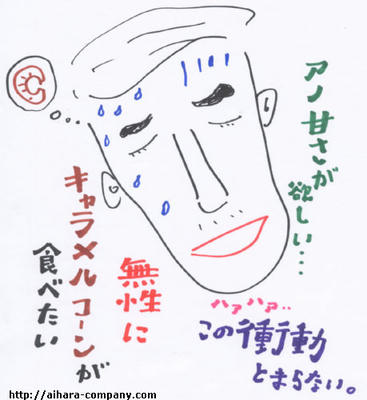 アノ甘さが
欲しい…
無性に
キャラメルコーンが
食べたい
ハァハァ‥
この衝動
とまらない。
http://aihara-company.com